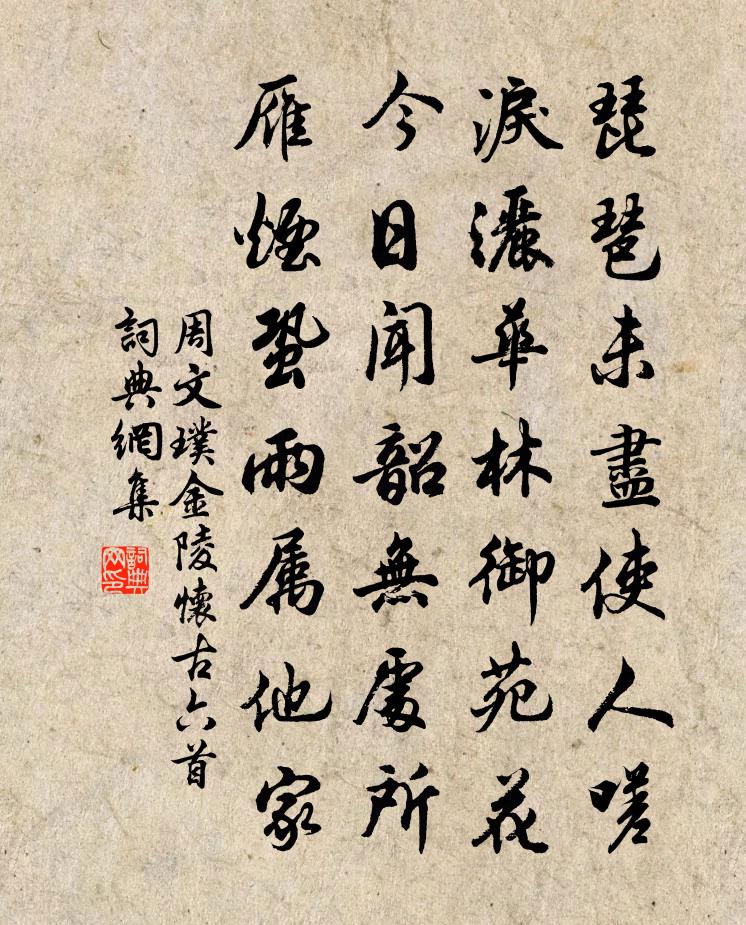 琵琶未盡使人嗟
淚灑華林御苑花
今日聞韶無處所
雁煙蛩雨属他家
周文璞金陵懷古六首
詞典網集
詞典網印